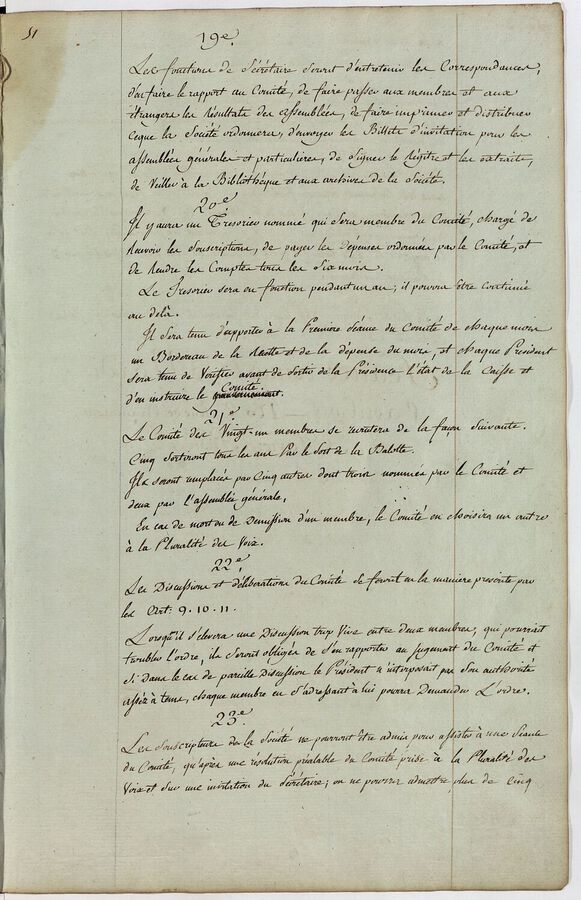 51
19e.
Les fonctions de Sécrétaire seront d'entretenir les Correspondances,
d'en faire le rapport au Comité, de faire passer aux membres et aux
étrangers les Résultats des assemblées, de faire imprimer et distribuer
ceque la Société ordonnera, d'envoyer les Billets d'invitation pour les
assemblées générales et particulières, de signer le Régitre et les extraits,
de Veiller à la Bibliothéque et aux archives de la Société.
20e.
Il y aura un Tresorier nommé qui sera membre du Comité, chargé de
recevoir les souscriptions, de payer les Dépenses ordonnées par le Comité, et
de Rendre les Comptes tous les six mois.
Le Tresorier sera en fonction pendant un an; il pourra être continué
au delà.
Il sera tenu d'apporter à la Premiere séance du Comité de chaque mois
un Bordereau de la Recette et de la dépense du mois, et chaque President
sera tenu de Verifier avant de sortir de la Présidence l'état de la Caisse et
d'en instruire le Comité.
21e.
Le Comité des Vingt-un membres se recrutera de la façon suivante.
Cinq sortiront tous les ans Par le Sort de la Balotte.
Ils seront remplacés par Cinq autres dont trois nommés par le Comité et
deux par l'assemblée générale.
En cas de mort ou de Demission d'un membre, le Comité en choisira un autre
à la Pluralité des Voix.
22e.
Les Discussions et déliberations du Comité se feront en la maniere prescrite par
les Art. 9. 10. 11.
Lorsqu'il s'élevera une Discussion trop Vive entre deux membres, qui pourrait
troubler l'ordre, ils seront obligés de s'en rapporter au jugement du Comité et
si dans le cas de pareille Discussion le Président n'interposait pas son authorité
assez à tems, chaque membre en s'adressant à lui pourra Demander L'ordre.
23e.
Les souscripteurs de la Société ne pourront être admis pour assister à une Séance
du Comité, qu'après une résolution préalable du Comité prise à la Pluralité des
Voix et sur une invitation du Sécrétaire; on ne pourra admettre plus de Cinq